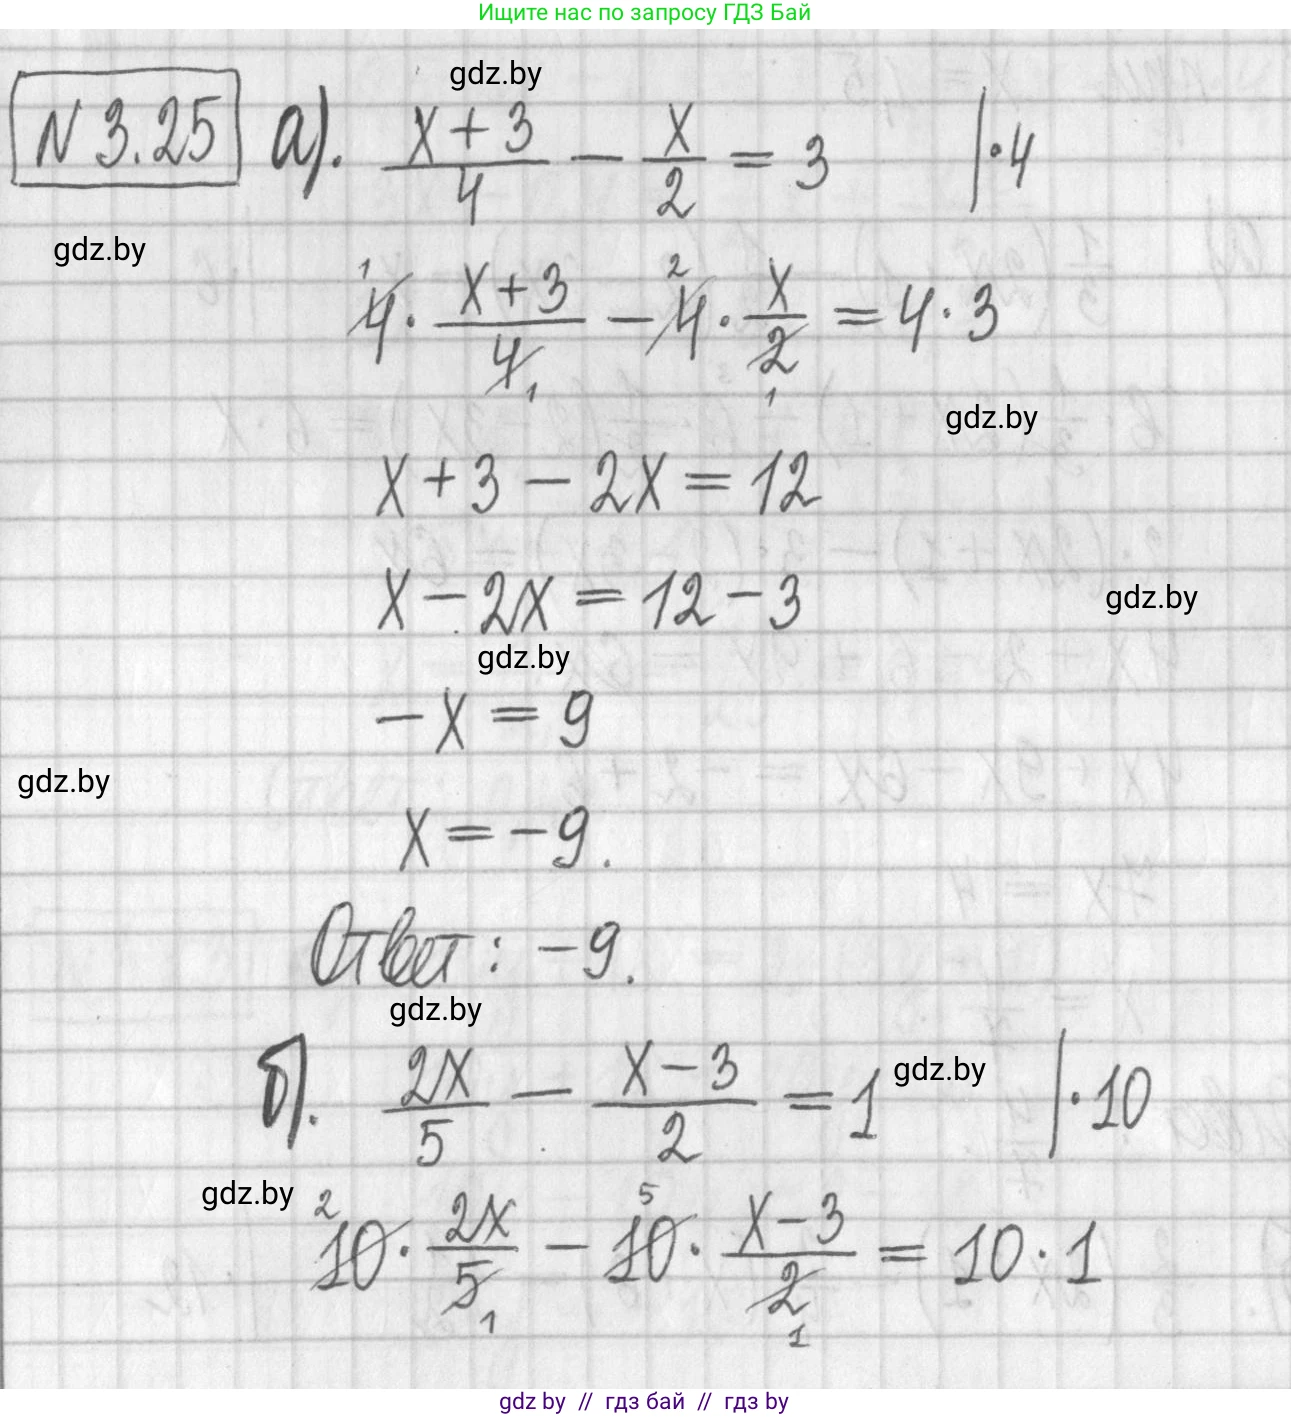 Ищите нас по запросу ГДЗ Бай
gdz.by
N 3.25 а). (x+3)/4 − x/2 = 3 |·4
gdz.by
4 · (x+3)/4 − 4 · x/2 = 4 · 3
1 1 2 1
gdz.by
x + 3 − 2x = 12
x − 2x = 12 − 3
gdz.by
gdz.by
− x = 9
gdz.by
x = −9.
Ответ: −9.
gdz.by
б). 2x/5 − (x−3)/2 = 1 |·10
gdz.by
gdz.by
10 · 2x/5 − 10 · (x−3)/2 = 10 · 1
2 1 5 1
gdz by // гдз бай // гдз by